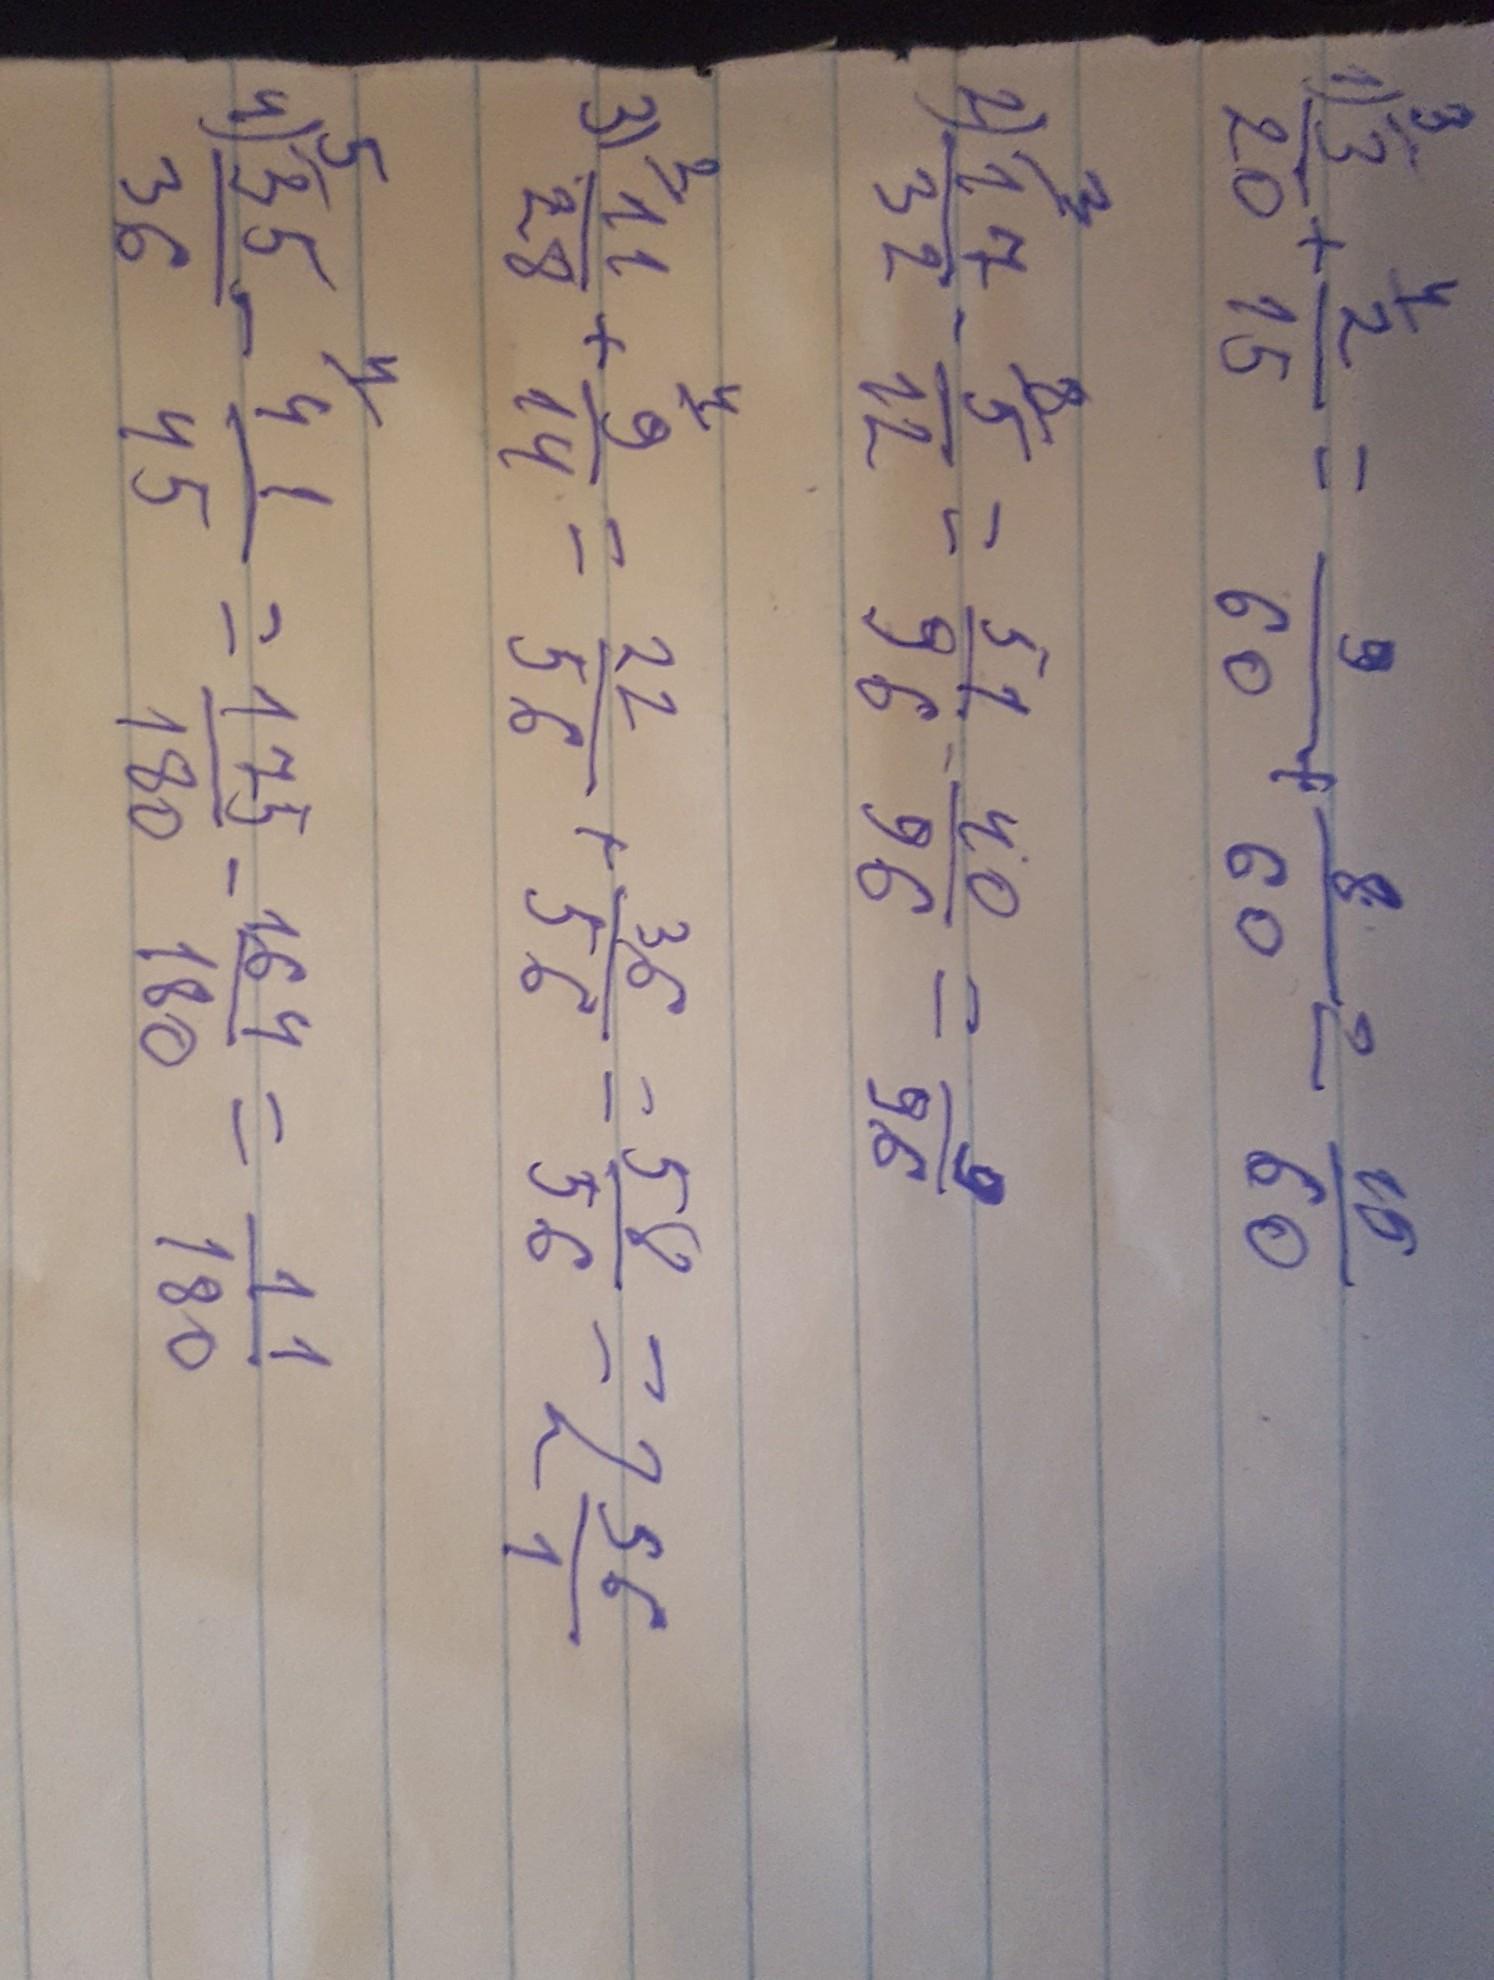 1) 3/20 + 2/15 = 9/60 + 8/60 = 16/60
2) 17/32 - 5/12 = 51/96 - 40/96 = 9/96
3) 11/28 + 9/14 = 22/56 + 36/56 = 58/56 = 2 56/1
4) 35/36 - 41/45 = 175/180 - 164/180 = 11/180